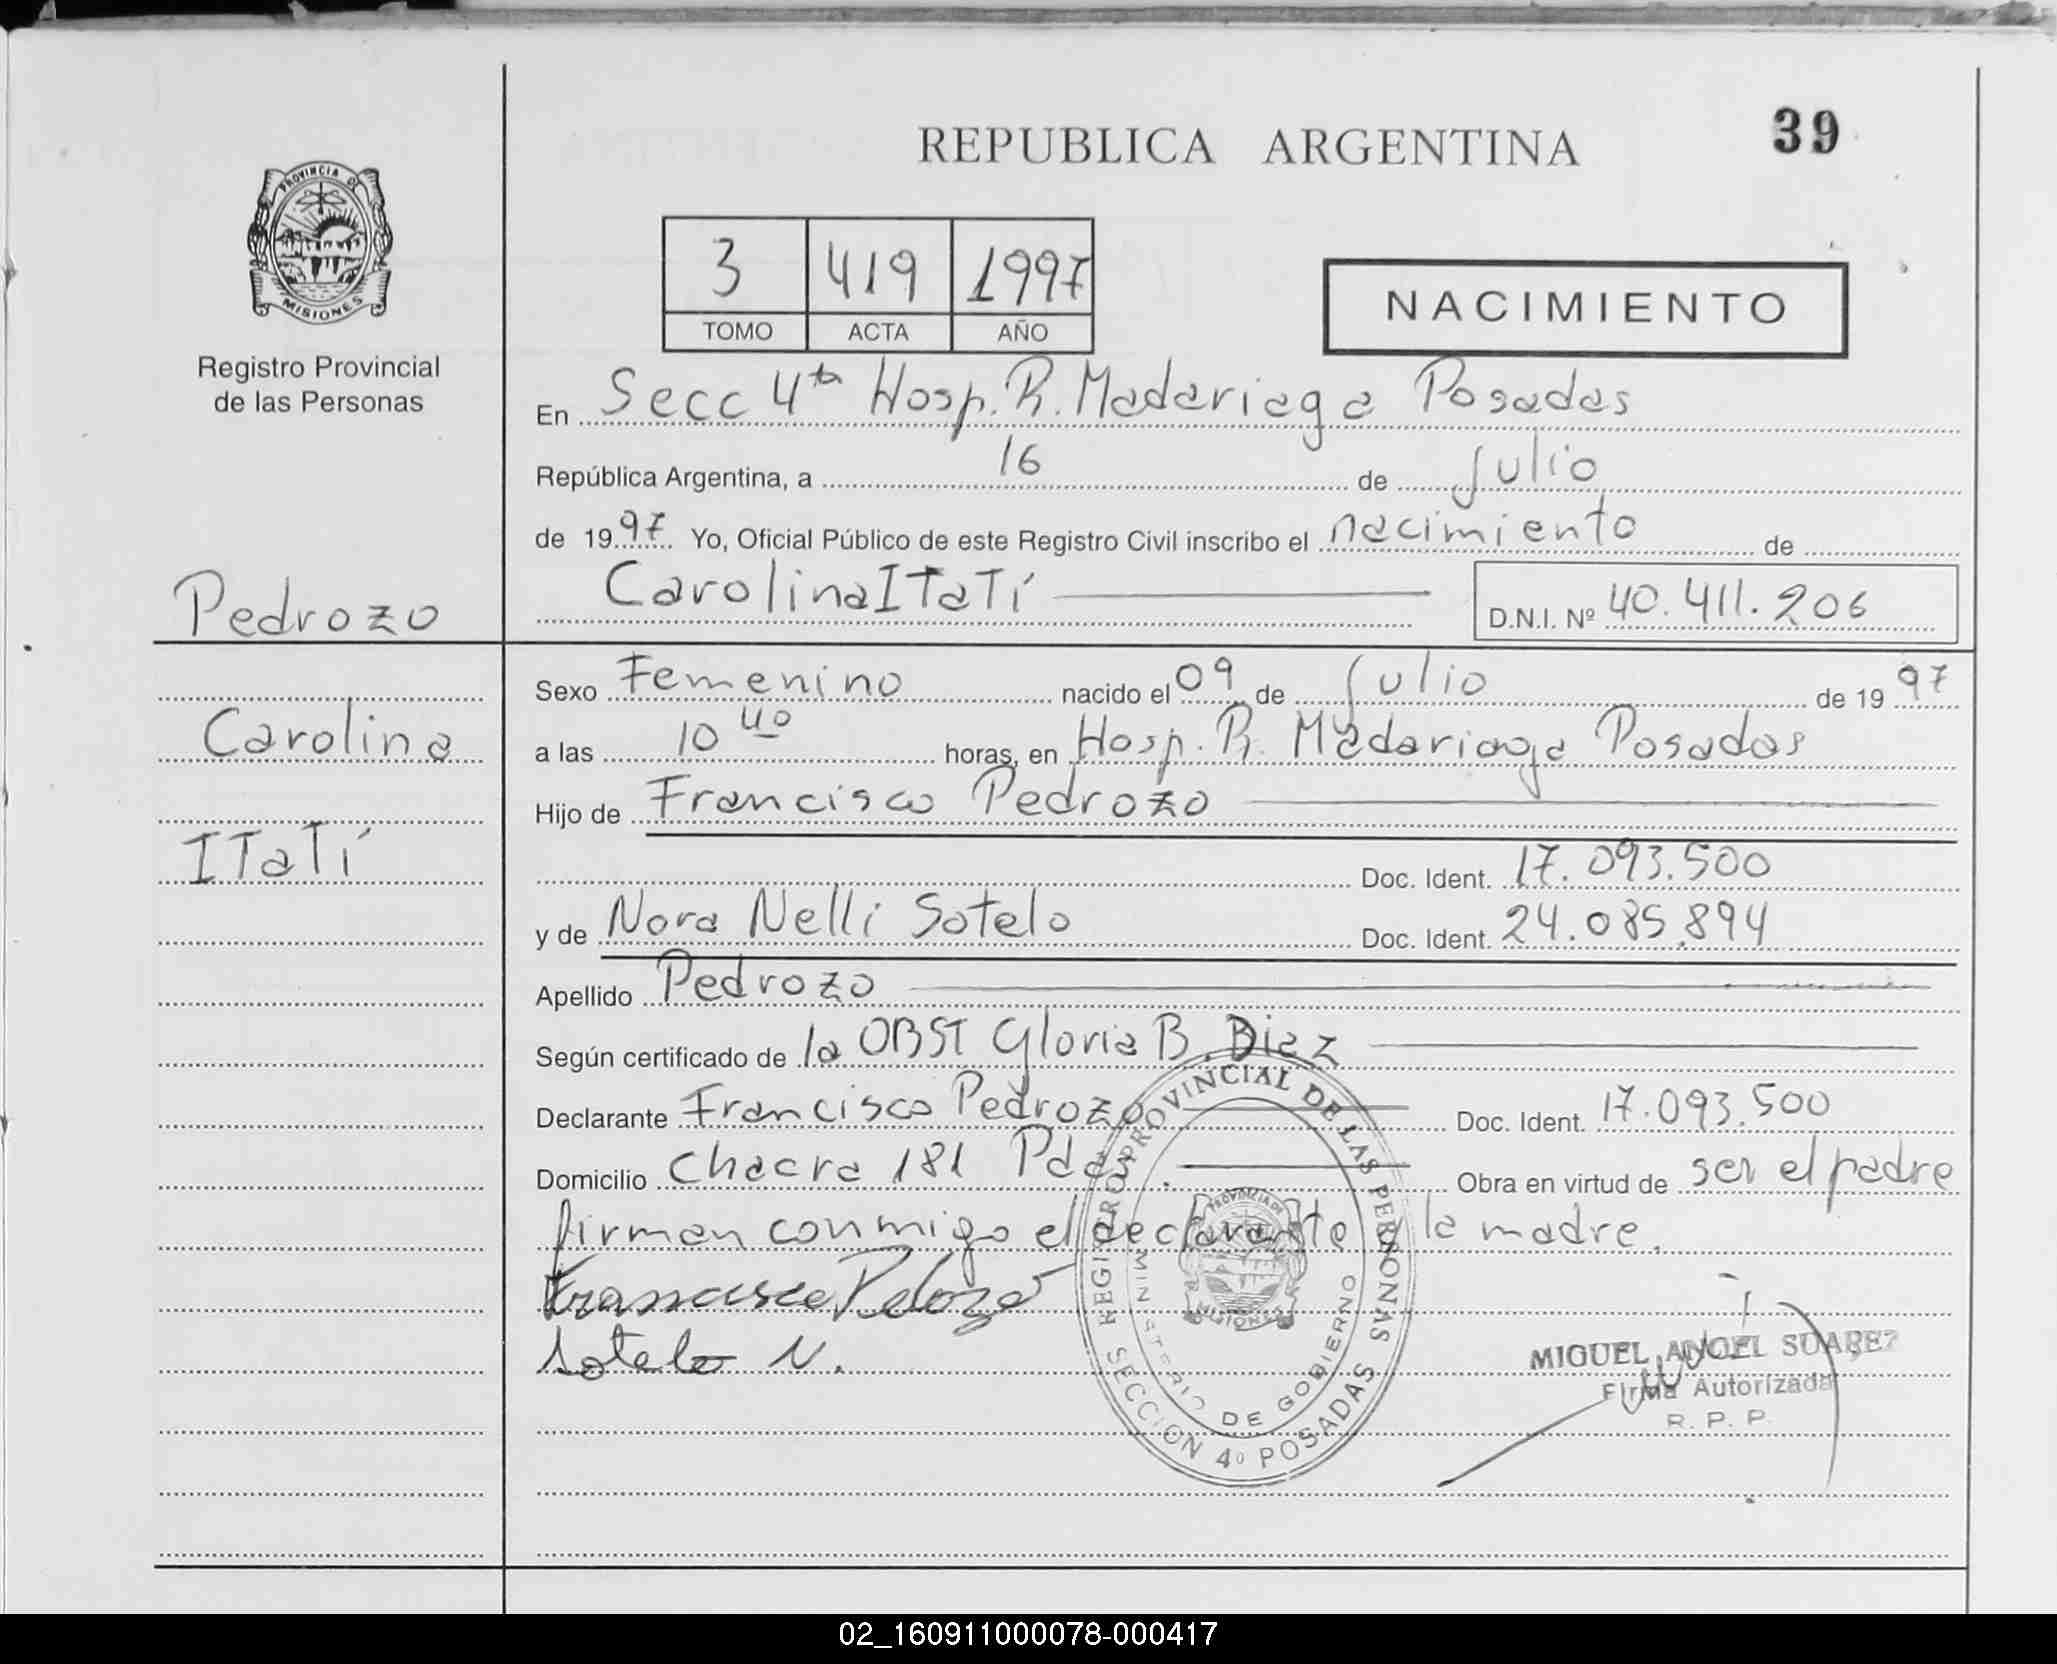 REPUBLICA ARGENTINA
39
PROVINCIA DE
MISIONES
Registro Provincial
de las Personas
3 419 1997
TOMO ACTA AÑO
NACIMIENTO
En Secc 4ta Hosp. R. Madariaga Posadas
República Argentina, a 16 de Julio
de 1997 Yo, Oficial Público de este Registro Civil inscribo el nacimiento de
Carolina ITaTí D.N.I. Nº 40.411.206
Pedrozo
Carolina
ITaTí
Sexo Femenino nacido el 09 de Julio de 1997
a las 10 40 horas, en Hosp. R. Madariaga Posadas
Hijo de Francisco Pedrozo
Doc. Ident. 17.093.500
y de Nora Nelli Sotelo Doc. Ident. 24.085.894
Apellido Pedrozo
Según certificado de la OBST Gloria B. Diaz
Declarante Francisco Pedrozo Doc. Ident. 17.093.500
Domicilio Chacra 181 Pdas. Obra en virtud de ser el padre
firman conmigo el declarante y la madre.
Francisco Pedozo
Sotelo N.
REGISTRO PROVINCIAL DE LAS PERSONAS
MINISTERIO DE GOBIERNO
PROVINCIA DE
MISIONES
SECCION 4º POSADAS
MIGUEL ANGEL SUAREZ
Firma Autorizada
R. P. P.
02_160911000078-000417